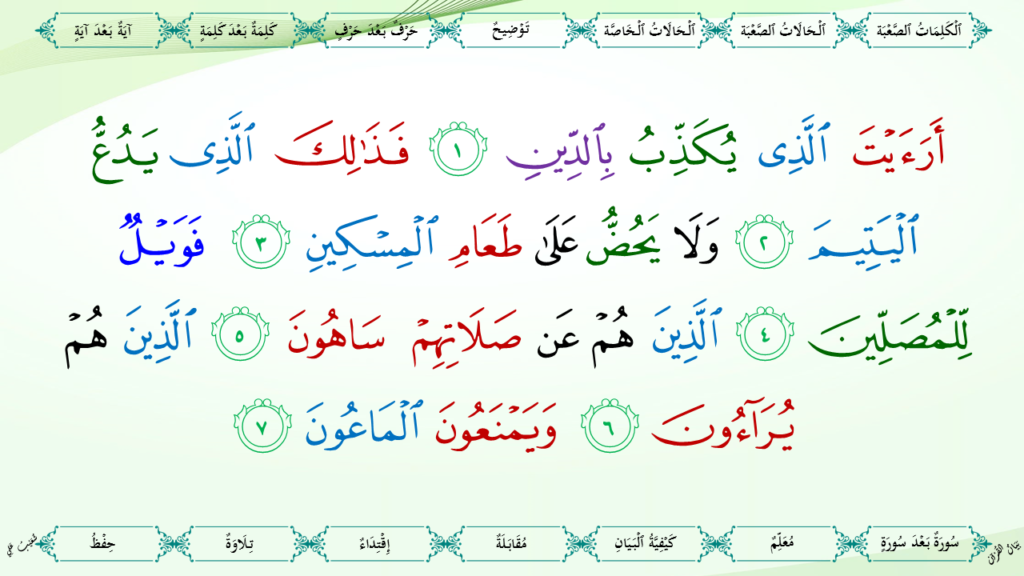 ٱلْكَلِمَاتُ ٱلصَّعْبَة ٱلْحَالَاتُ ٱلصَّعْبَة ٱلْحَالَاتُ ٱلْخَاصَّة تَوْضِيحٌ حَرْفٌ بَعْدَ حَرْفٍ كَلِمَةٌ بَعْدَ كَلِمَةٍ آيَةٌ بَعْدَ آيَةٍ
أَرَءَيْتَ ٱلَّذِى يُكَذِّبُ بِٱلدِّينِ ١ فَذَٰلِكَ ٱلَّذِى يَدُعُّ
ٱلْيَتِيمَ ٢ وَلَا يَحُضُّ عَلَىٰ طَعَامِ ٱلْمِسْكِينِ ٣ فَوَيْلٌ
لِّلْمُصَلِّينَ ٤ ٱلَّذِينَ هُمْ عَن صَلَاتِهِمْ سَاهُونَ ٥ ٱلَّذِينَ هُمْ
يُرَآءُونَ ٦ وَيَمْنَعُونَ ٱلْمَاعُونَ ٧
بَيَانُ القُرْآن سُورَةٌ بَعْدَ سُورَةٍ مُعَلِّمٌ كَيْفِيَّةُ ٱلْبَيَانِ مُقَابَلَةٌ إِقْتِدَاءٌ تِلَاوَةٌ حِفْظٌ